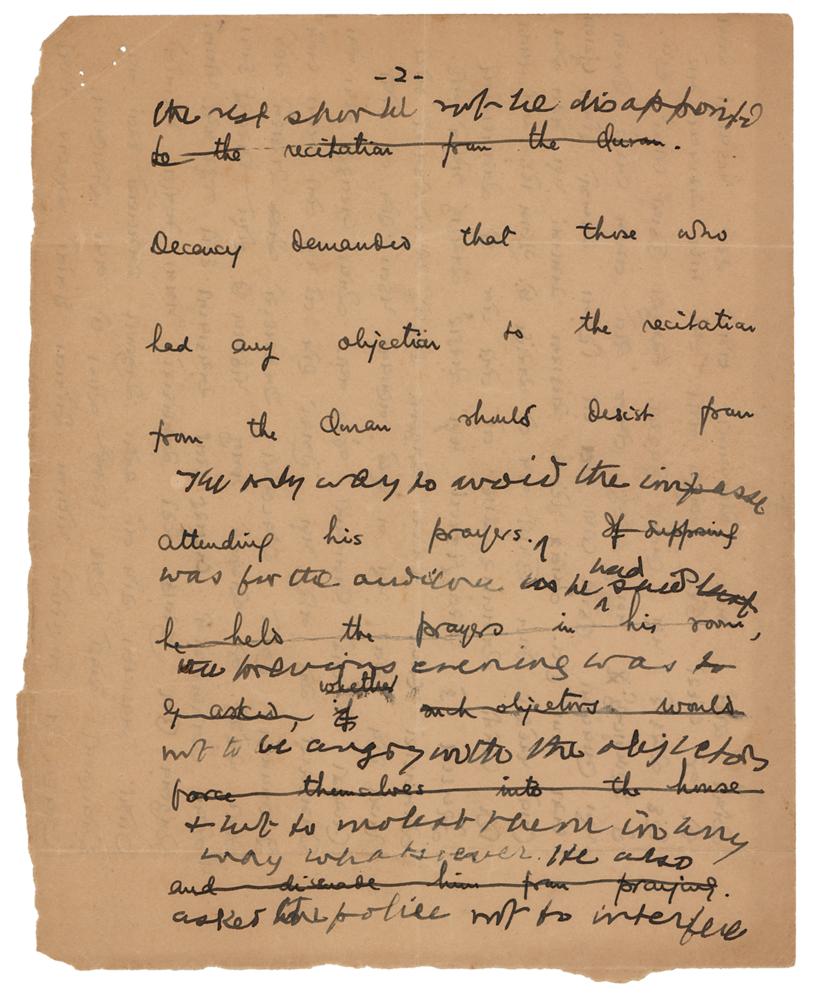 -2-
the rest should not be disappointed
to the recitation from the Quran.
Decency demanded that those who
had any objection to the recitation
from the Quran should desist from
The only way to avoid the impasse
attending his prayers. If supposing
was for the audience as he had said last
he held the prayers in his room,
the previous evening was to
G asked, if whether such objectors would
not to be angry with the objectors
force themselves into the house
+ not to molest them in any
way whatsoever. He also
and dissuade him from praying.
asked the police not to interfere